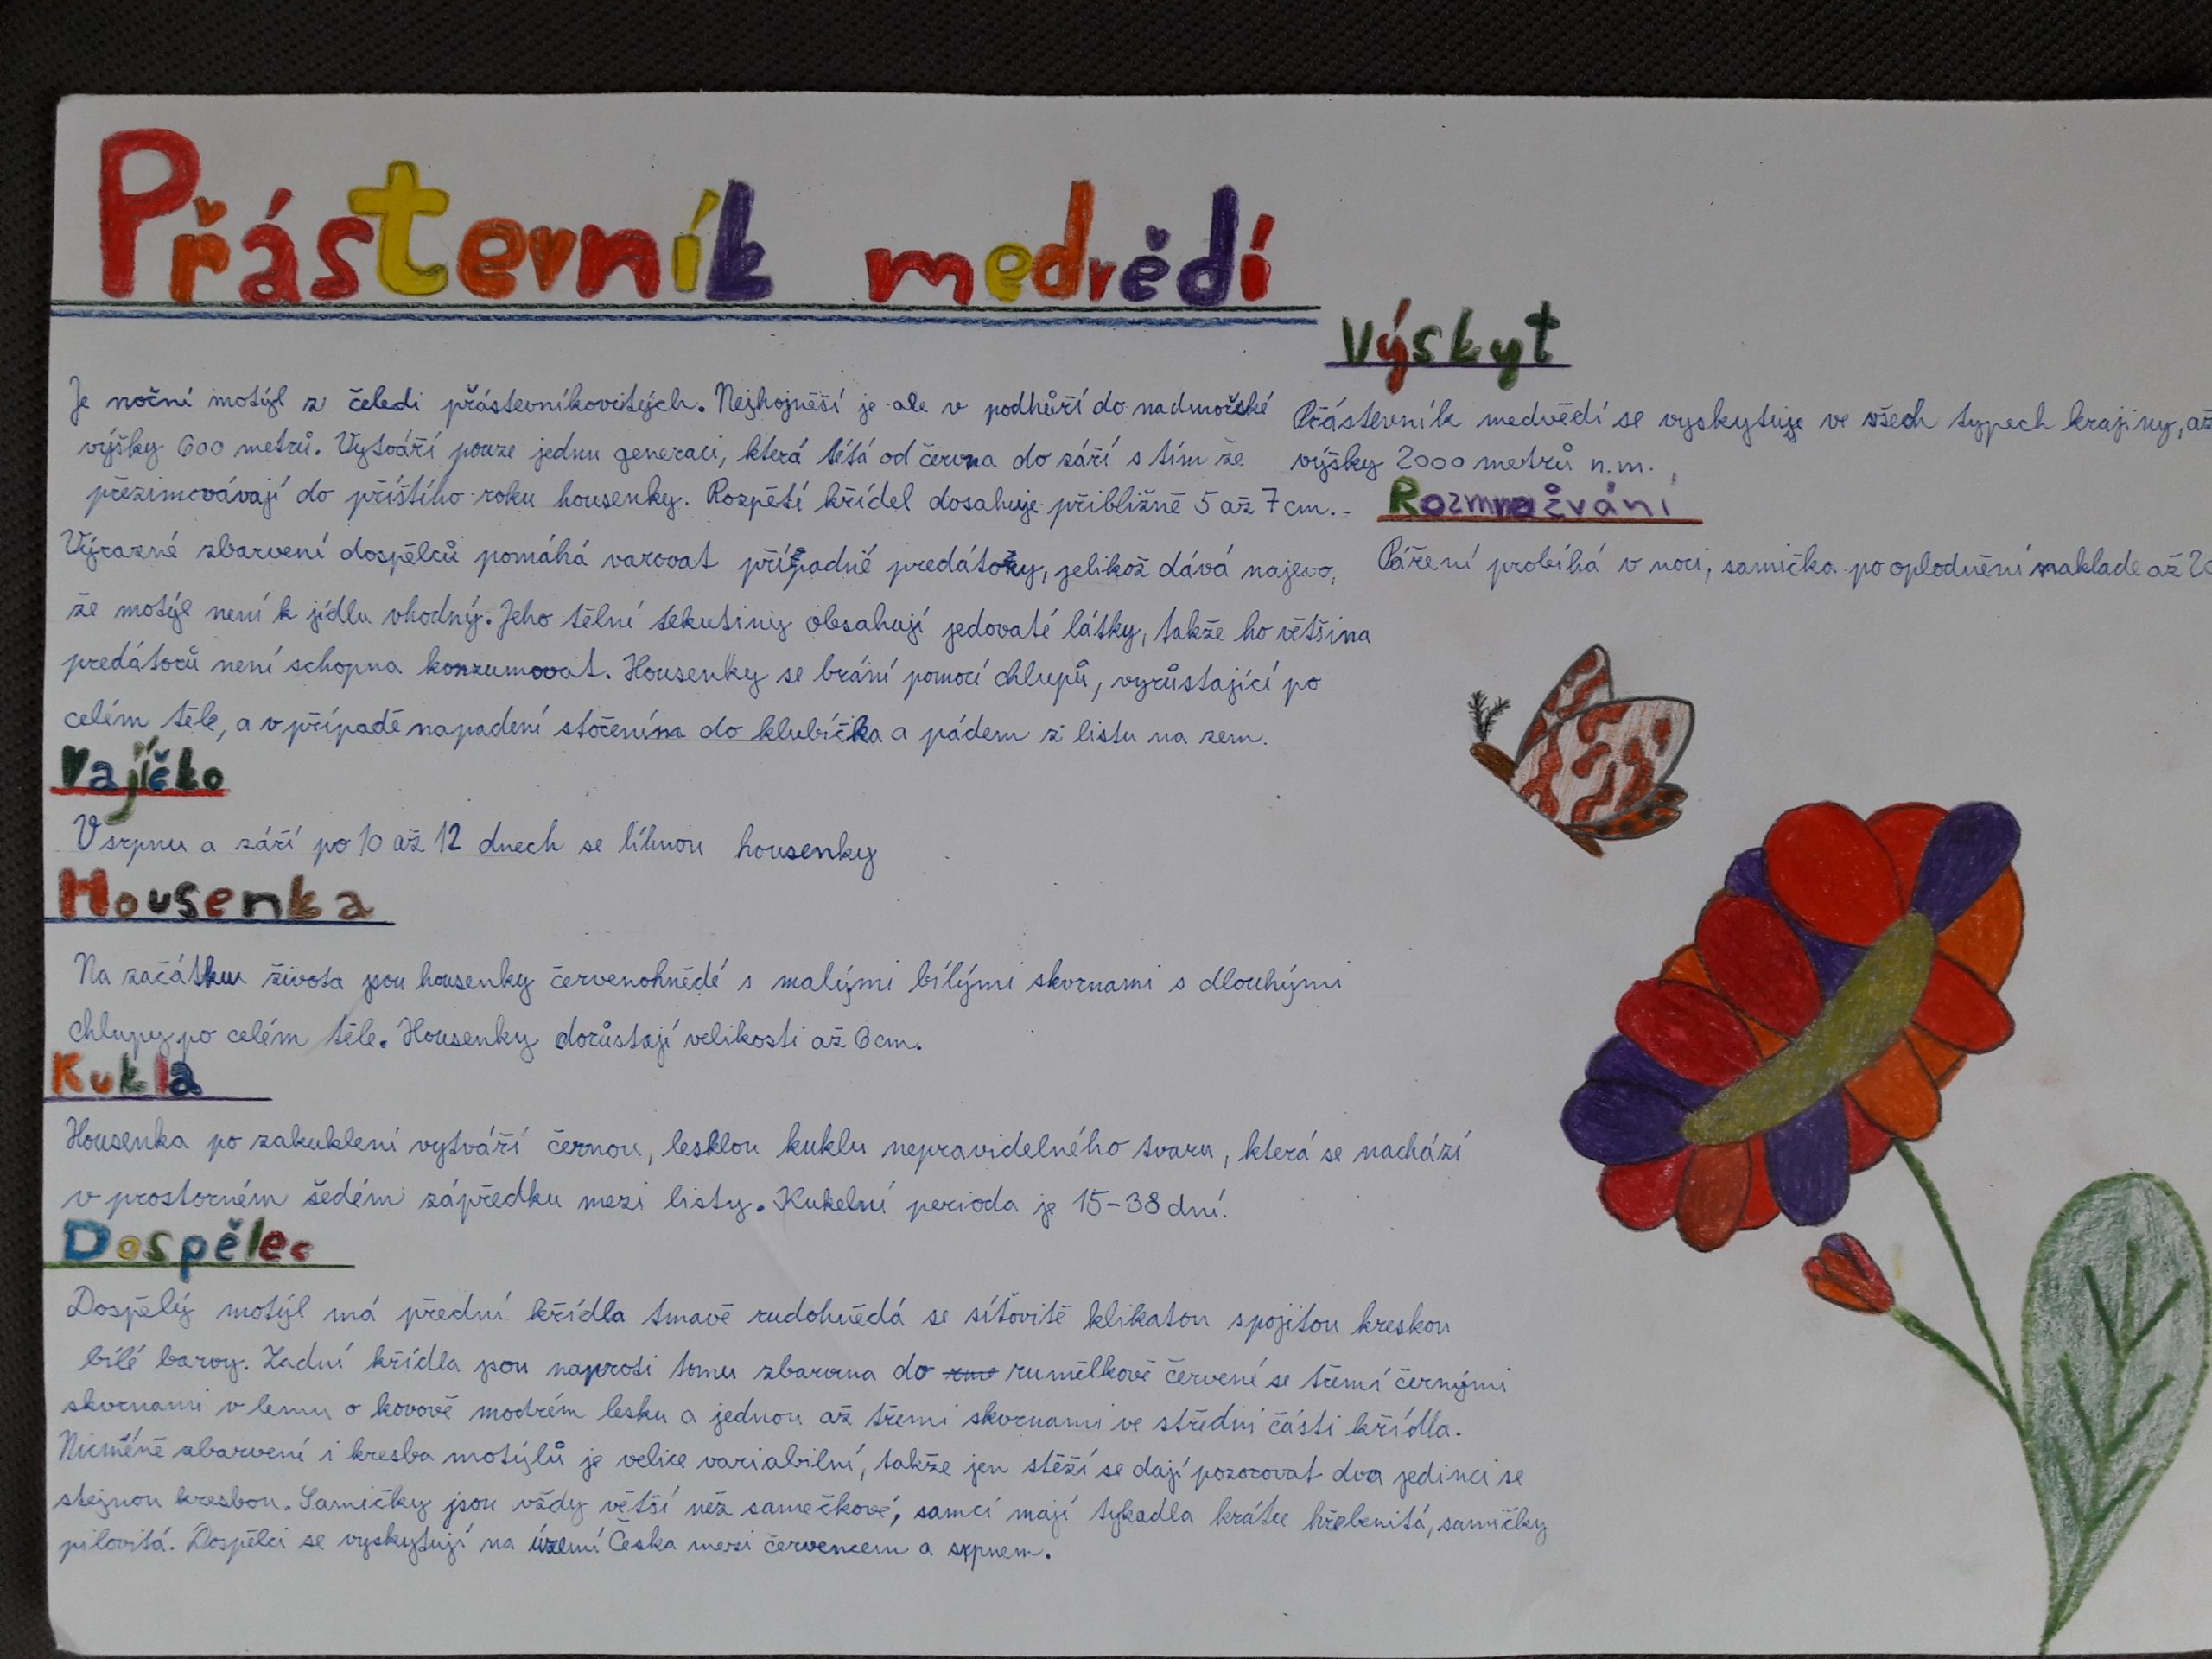 Přástevník medvědí
Je noční motýl z čeledi přástevníkovitých. Nejhojněší je ale v podhůří do nadmořské
výšky 600 metrů. Vytváří pouze jednu generaci, která létá od června do září s tím že
přezimovávají do příštího roku housenky. Rozpětí křídel dosahuje přibližně 5 až 7 cm.
Výrazné zbarvení dospělců pomáhá varovat případné predátory, jelikož dává najevo,
že motýl není k jídlu vhodný. Jeho tělní tekutiny obsahují jedovaté látky, takže ho většina
predátorů není schopna konzumovat. Housenky se brání pomocí chlupů, vyrůstající po
celém těle, a v případě napadení stočením do klubíčka a pádem z listu na zem.
Vajíčko
V srpnu a září po 10 až 12 dnech se líhnou housenky
Housenka
Na začátku života jsou housenky červenohnědé s malými bílými skvrnami s dlouhými
chlupy po celém těle. Housenky dorůstají velikosti až 6 cm.
Kukla
Housenka po zakuklení vytváří černou, lesklou kuklu nepravidelného tvaru, která se nachází
v prostorném šedém zápředku mezi listy. Kukelní perioda je 15-38 dní.
Dospělec
Dospělý motýl má přední křídla tmavě rudohnědá se síťovitě klikatou spojitou kreskou
bílé barvy. Zadní křídla jsou naproti tomu zbarvena do rumělkově červené se třemi černými
skvrnami v lemu o kovově modrém lesku a jednou až třemi skvrnami ve střední části křídla.
Nicméně zbarvení i kresba motýlů je velice variabilní, takže jen stěží se dají pozorovat dva jedinci se
stejnou kresbou. Samičky jsou vždy větší než samečkové, samci mají tykadla krátce hřebenitá, samičky
pilovitá. Dospělci se vyskytují na území Česka mezi červencem a srpnem.
Výskyt
Přástevník medvědí se vyskytuje ve všech typech krajiny, až
výšky 2000 metrů n.m.
Rozmnožvání
Páření probíhá v noci, samička po oplodnění naklade až